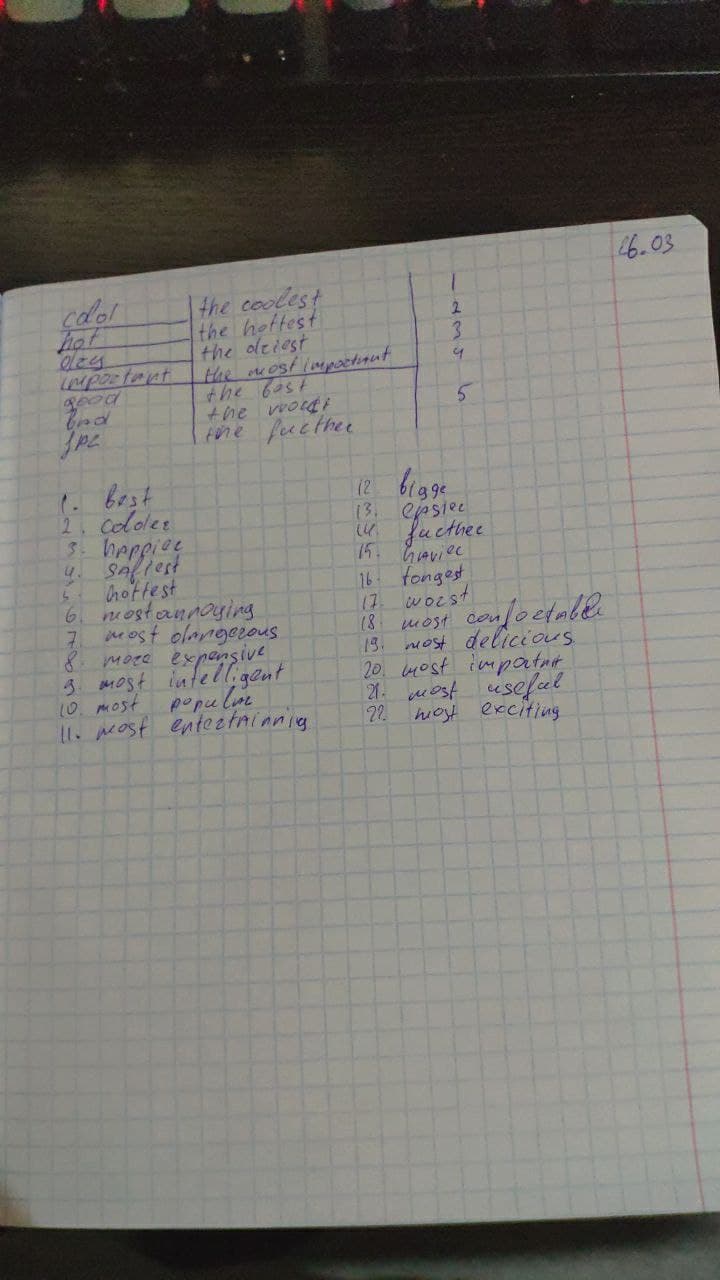 26.03
cold the coolest 1
hot the hottest 2
dry the driest 3
important the most important 4
good the best
bad the worst 5
far the further
1. best
2. colder
3. happier
4. saftest
5. hottest
6. most annoying
7. most dangerous
8. more expensive
9. most intelligent
10. most popular
11. most entertainnig
12. bigge
13. easier
14. further
15. havier
16. longest
17. worst
18. most comfortable
19. most delicious
20. most importnt
21. most useful
22. most exciting